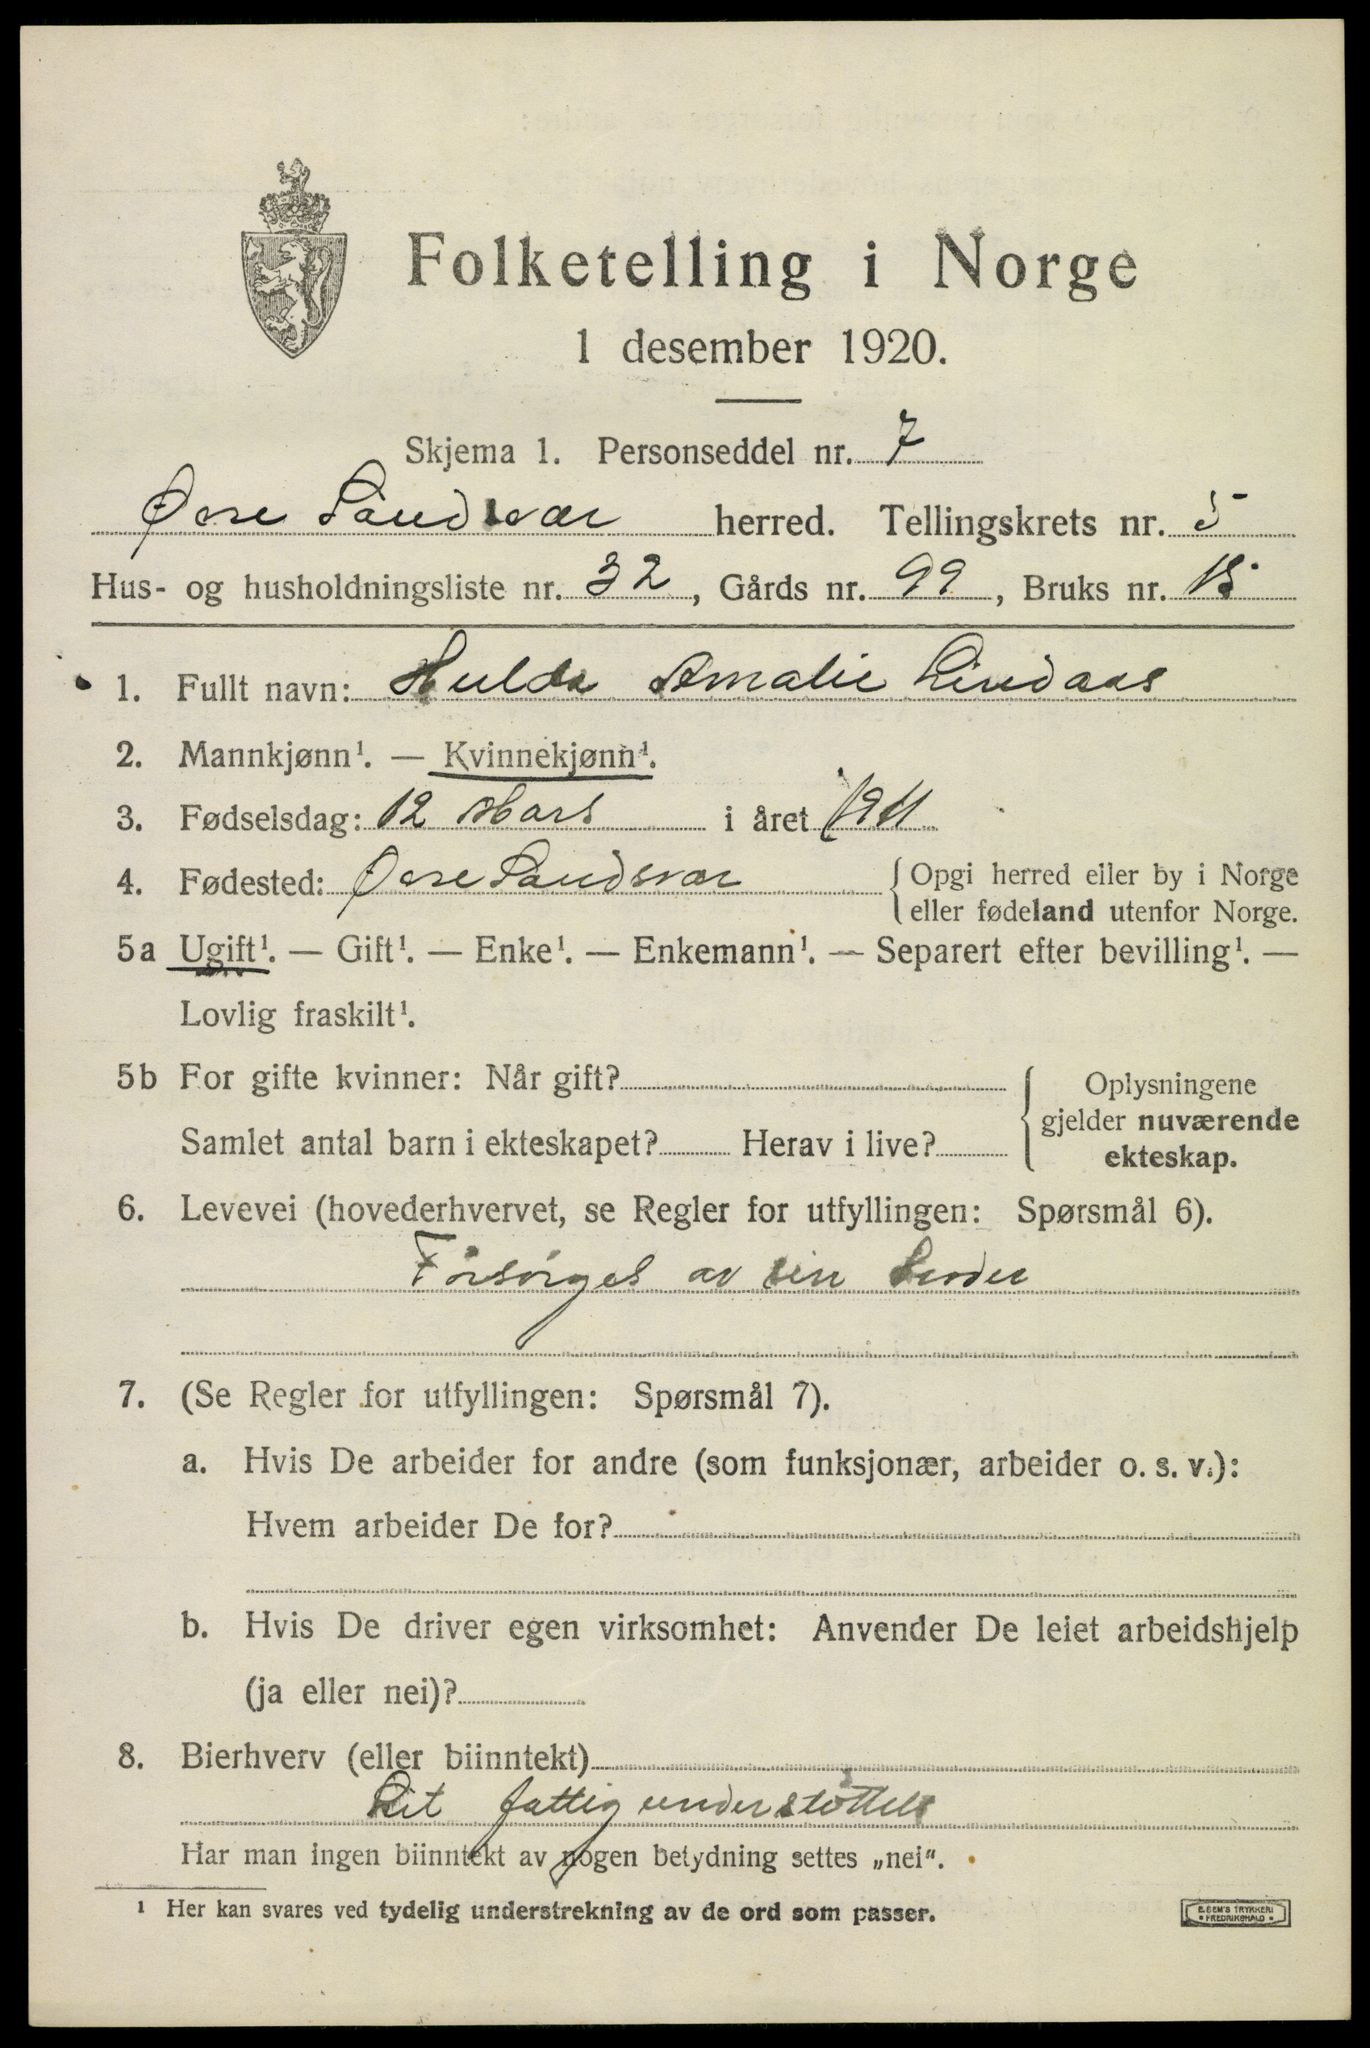 Folketelling i Norge
1 desember 1920.
Skjema 1. Personseddel nr. 7
Øvre Sandsvær herred. Tellingskrets nr. 5
Hus- og husholdningsliste nr. 32, Gårds nr. 99, Bruks nr. 15
1. Fullt navn: Hulda Amalie Lindaas
2. Mannkjønn¹. — Kvinnekjønn¹.
3. Fødselsdag: 12 Mars i året 1911
4. Fødested: Øvre Sandsvær {Opgi herred eller by i Norge
eller fødeland utenfor Norge.
5a Ugift¹. — Gift¹. — Enke¹. — Enkemann¹. — Separert efter bevilling¹. —
Lovlig fraskilt¹.
5b For gifte kvinner: Når gift? {Oplysningene
gjelder nuværende
Samlet antal barn i ekteskapet? Herav i live?
ekteskap.
6. Levevei (hovederhvervet, se Regler for utfyllingen: Spørsmål 6).
Forsørges av sin
7. (Se Regler for utfyllingen: Spørsmål 7).
a. Hvis De arbeider for andre (som funksjonær, arbeider o. s. v.):
Hvem arbeider De for?
b. Hvis De driver egen virksomhet: Anvender De leiet arbeidshjelp
(ja eller nei)?
8. Bierhverv (eller biinntekt)
fattigunderstöttelse
Har man ingen biinntekt av nogen betydning settes „nei“.
¹ Her kan svares ved tydelig understrekning av de ord som passer.
E. SEM'S TRYKKERI
• FREDRIKSHALD •